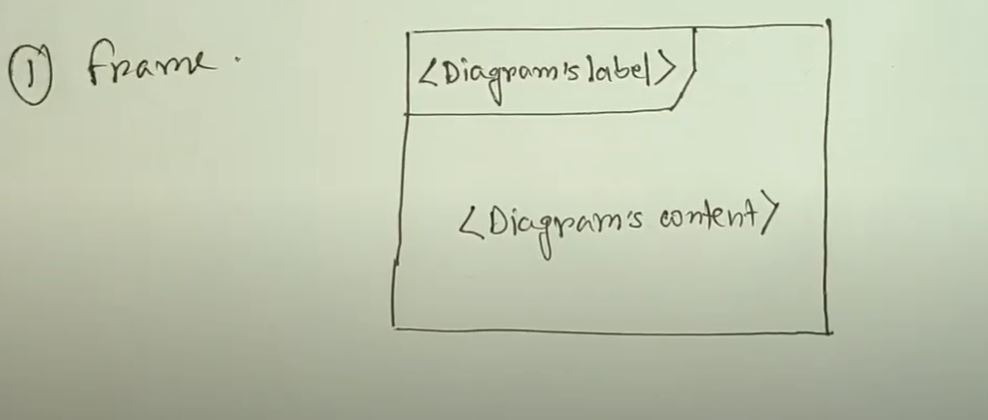 ① frame.
<Diagram's label>
<Diagram's content>